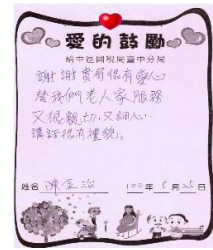 愛的鼓勵
給中區國稅局臺中分局
謝謝貴局很有愛心
替我們老人家服務
又很親切,又細心
講話很有禮貌。
姓名 陳金治 100年5月25日